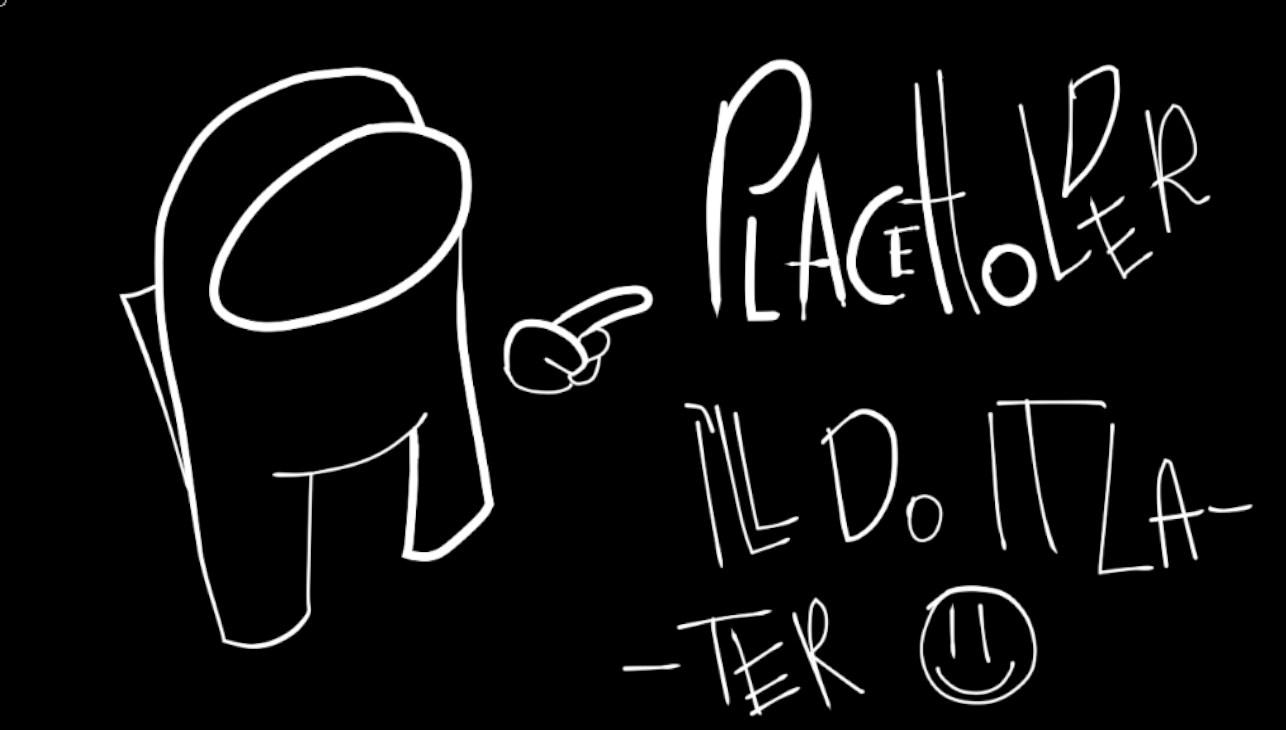 PLACEHOLDER
I'LL DO IT LA-
-TER